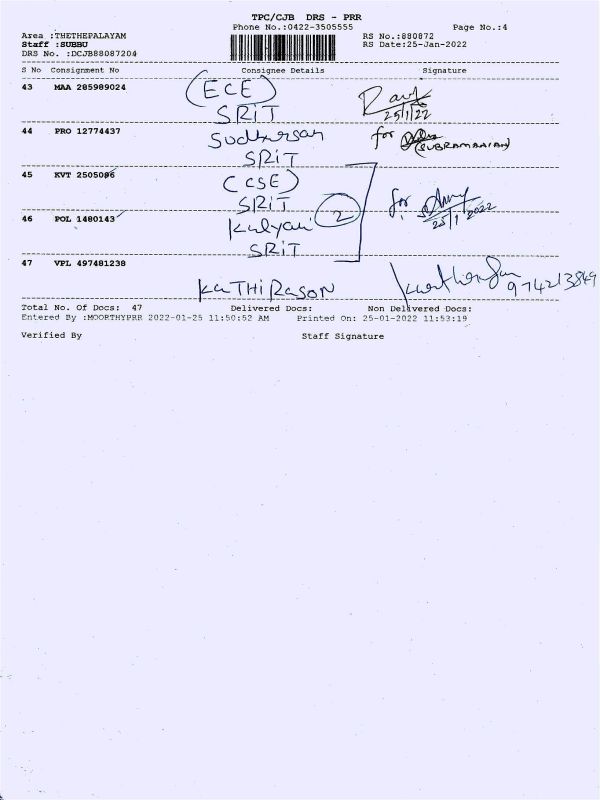 TPC/CJB DRS - PRR
Phone No.:0422-3505555 Page No.:4
Area :THETHEPALAYAM RS No.:880872
Staff :SUBBU RS Date:25-Jan-2022
DRS No. :DCJB88087204
S No Consignment No Consignee Details Signature
43 MAA 285989024 (ECE)
SRiT 25/1/22
44 PRO 12774437 Sudharsan for
SRiT (SUBRAMANIAN)
45 KVT 2505096 (CSE)
SRiT for
46 POL 1480143 Kalyani 2 25/1/2022
SRiT
47 VPL 497481238
KaTHiRaSON 974213849
Total No. Of Docs: 47 Delivered Docs: Non Delivered Docs:
Entered By :MOORTHYPRR 2022-01-25 11:50:52 AM Printed On: 25-01-2022 11:53:19
Verified By Staff Signature